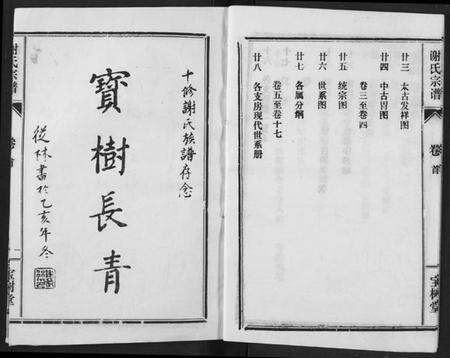 谢氏宗谱
卷首
宝树堂
廿三 太古发祥图
廿四 中古冑图
卷三至卷四
廿五 统宗图
廿六 世系图
廿七 各属分纲
卷五至卷十七
廿八 各支房现代世系册
十修謝氏族譜存念
寶樹長青
從林書於乙亥年冬
谢氏宗谱
卷首
宝树堂